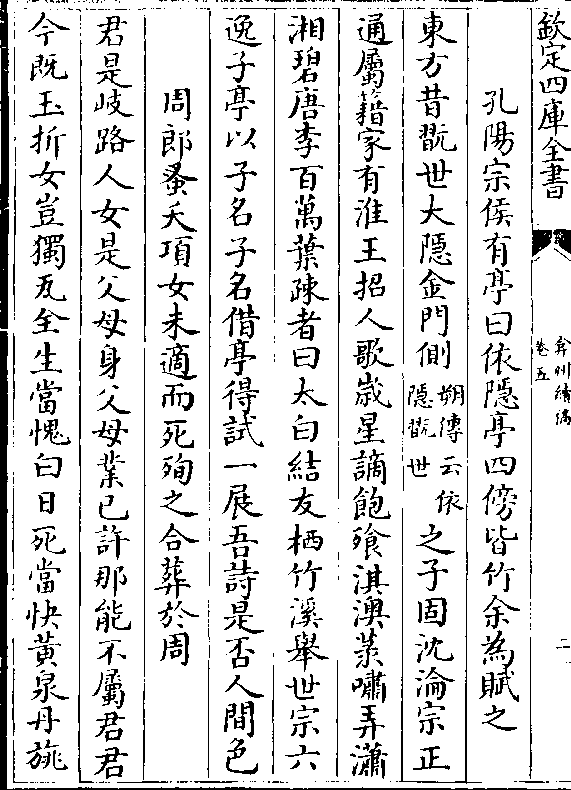 欽定四庫全書
弇州續稿
卷五
二
孔陽宗侯有亭曰依隱亭四傍皆竹余為賦之
東方昔翫世大隱金門側朔傳云依隱翫世之子固沈淪宗正
通屬籍家有淮王招人歌歲星謫飽飧淇澳菉嘯弄瀟
湘碧唐李百萬葉疎者曰太白結友栖竹溪舉世宗六
逸子亭以子名子名借亭得試一展吾詩是否人間色
周郎蚤夭項女未適而死殉之合葬於周
君是岐路人女是父母身父母業已許那能不屬君君
今既玉折女豈獨瓦全生當愧白日死當快黃泉丹旐